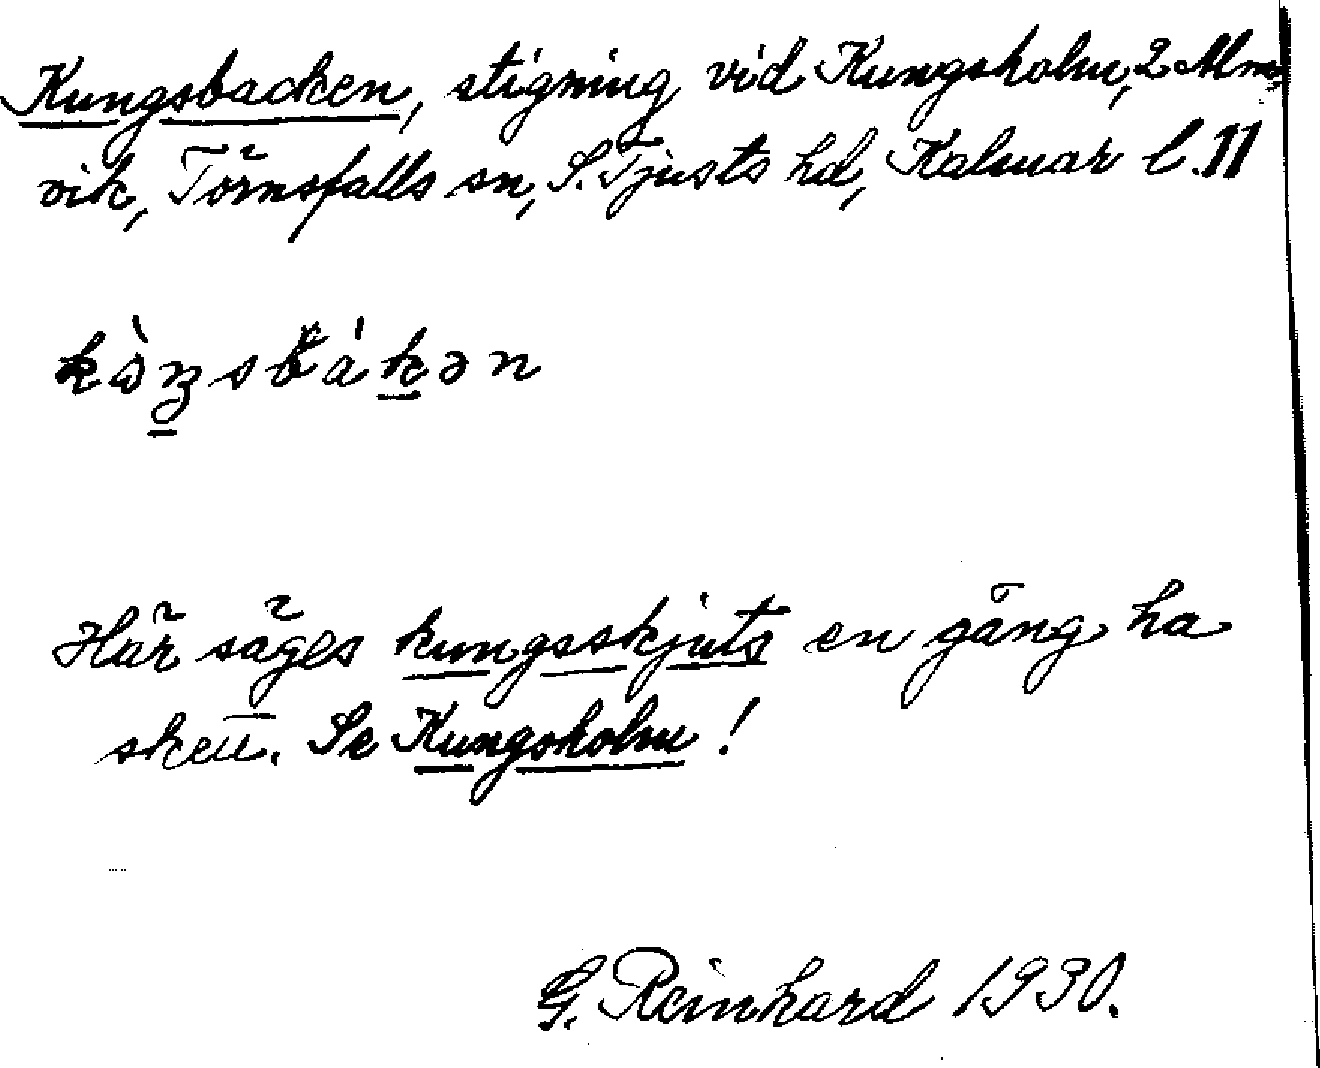 Kungsbacken, stigning vid Kungsholm, 2 Mm,
vik, Törnsfalls sn, S. Tjusts hd, Kalmar l. 11
Här säges kungsskjuts en gång ha
skett. Se Kungsholm!
G. Reinhard 1930.